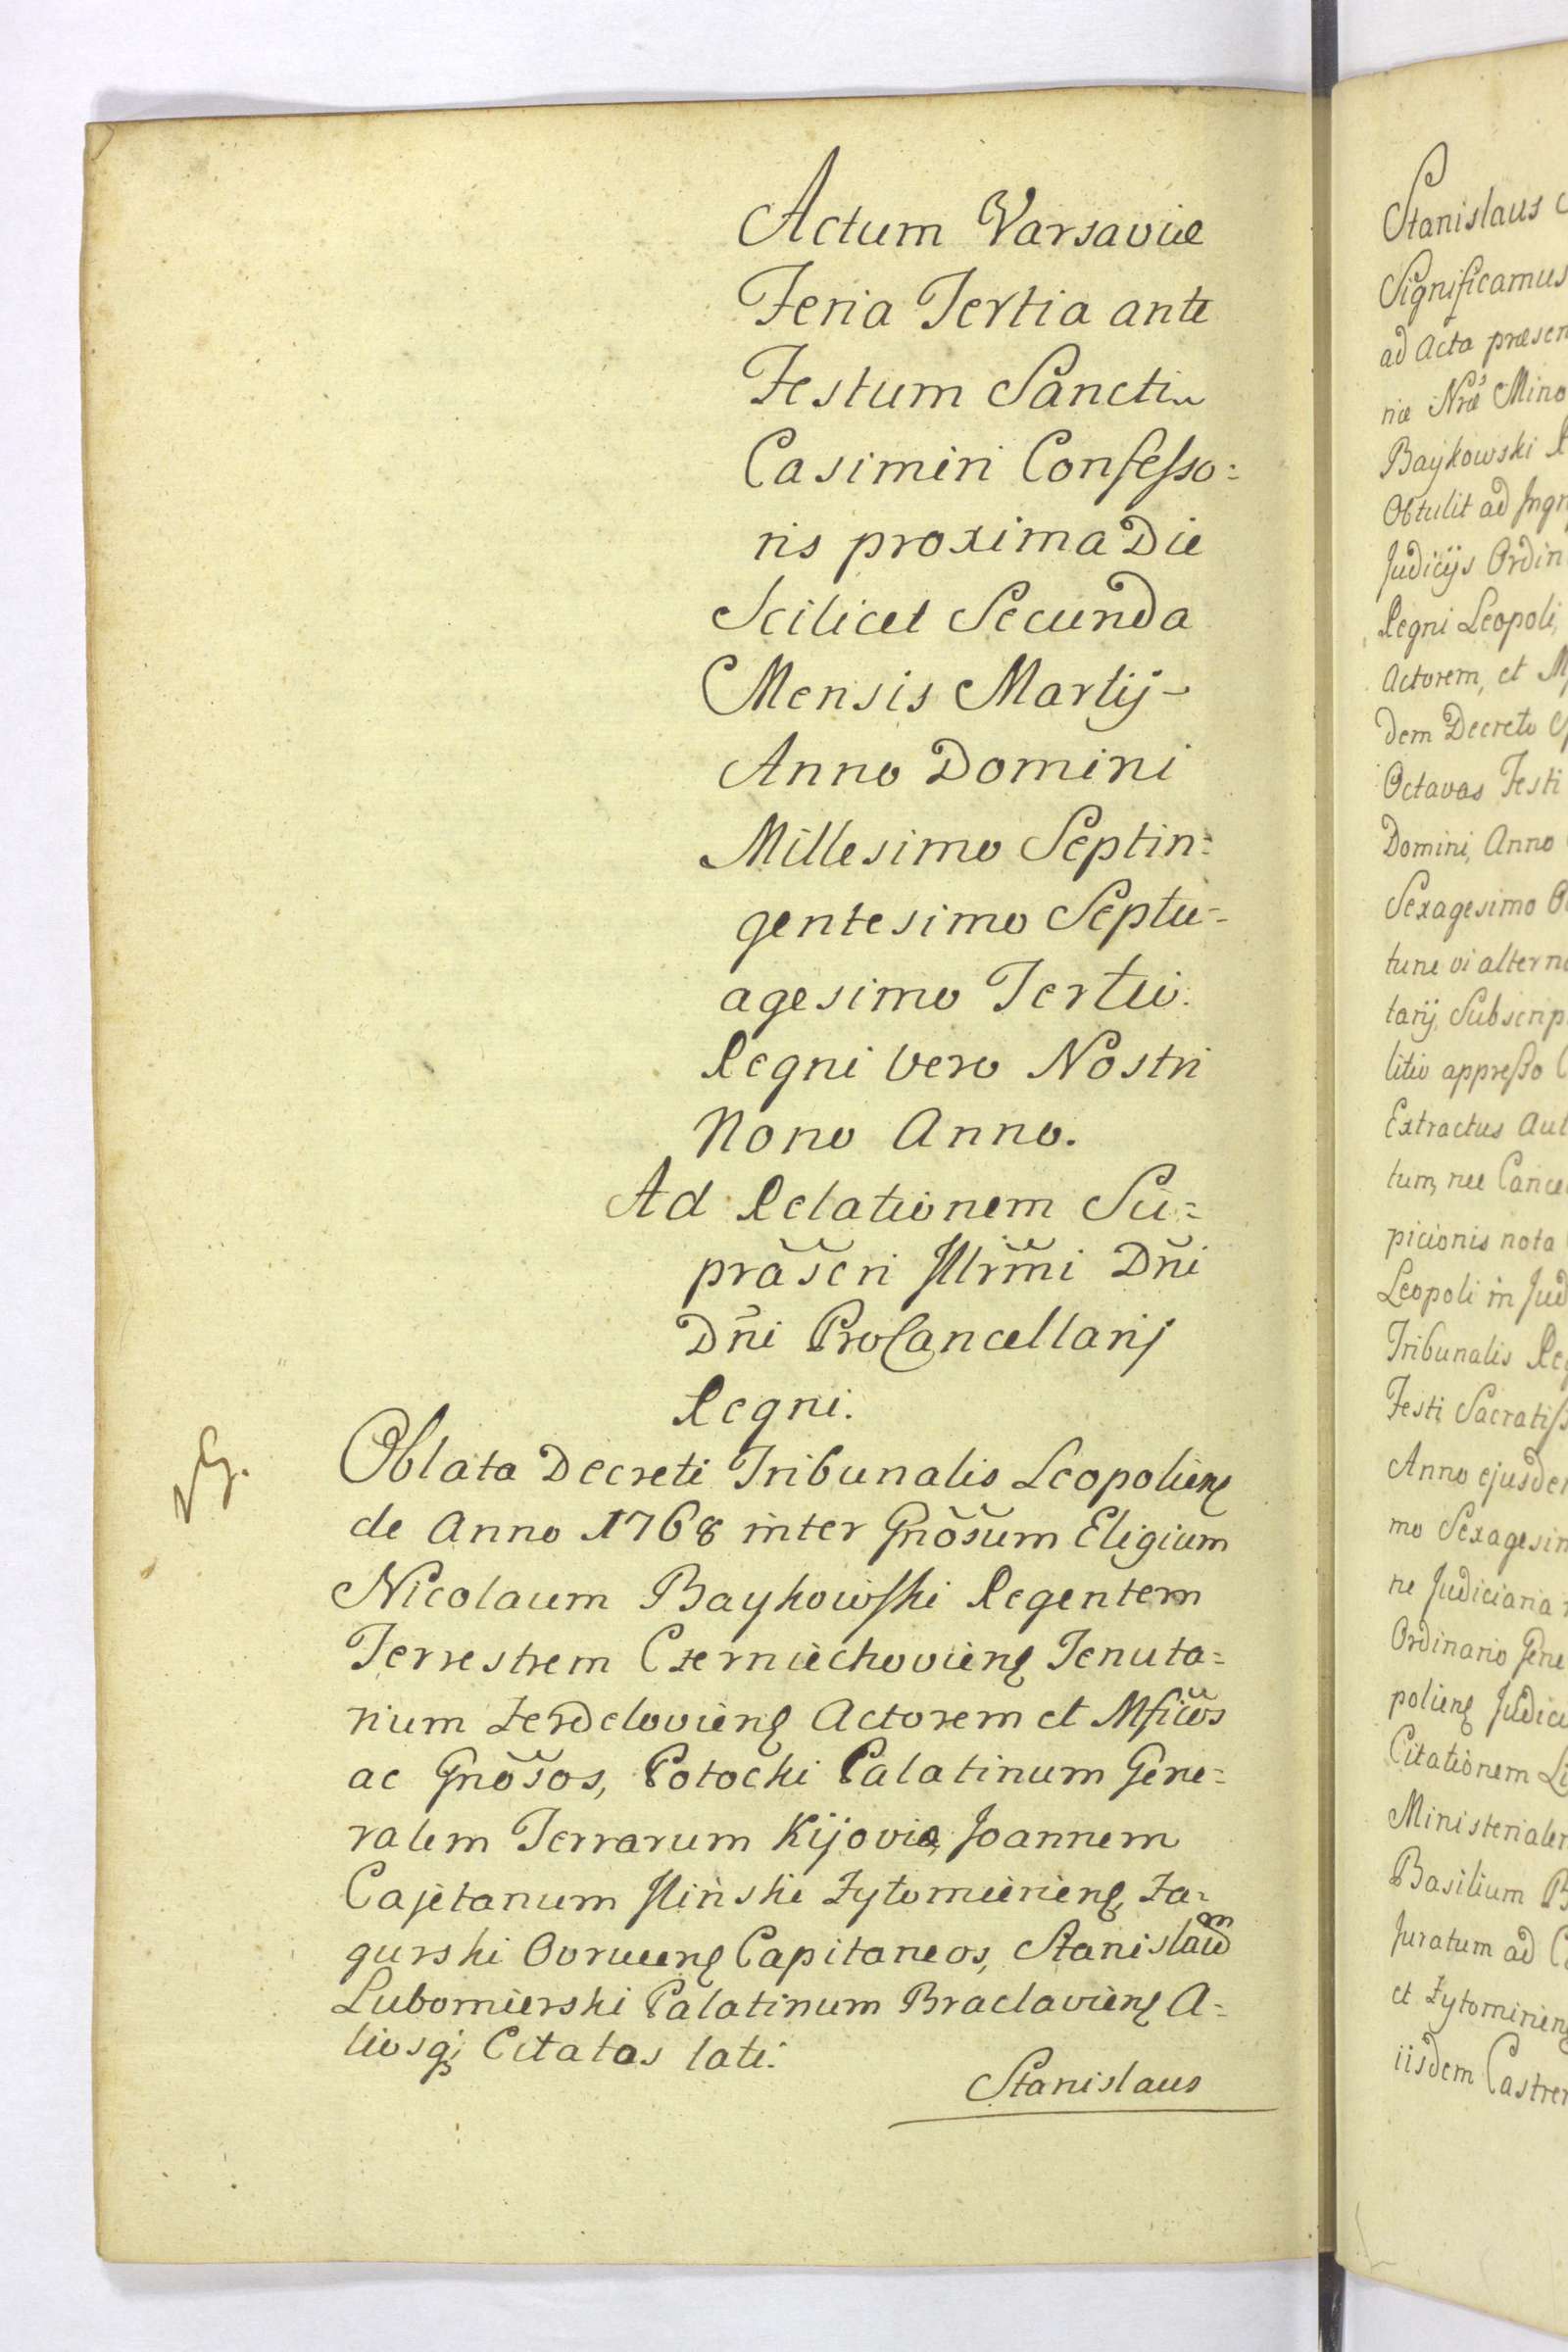 Actum Varsaviæ
Feria Tertia ante
Festum Sancti
Casimiri Confesso=
ris proxima Die
Scilicet Secunda
Mensis Martij
Anno Domini
Millesimo Septin=
gentesimo Septu=
agesimo Tertio.
Regni vero Nostri
Nono Anno.
Ad Relationem Su=
prãscri Illrm̃i Dñi
Dñi ProCancellarij
Regni.
Oblata Decreti Tribunalis Leopolien̄
de Anno 1768 inter Gnõsum Eligium
Nicolaum Baykowski Regentem
Terrestrem Czerniechovien̄ Tenuta=
rium Zerdelovien̄ Actorem et Mficos
ac Gnõsos, Potocki Palatinum Gene=
ralem Terrarum Kijoviæ, Joannem
Cajetanum Ilinski Zytomierien̄, Za=
gurski Ovrucen̄ Capitaneos, Stanislaum
Lubomierski Palatinum Braclavien̄ A=
liosq; Citatos lati.
Stanislaus
Stanislaus
Significamus
ad Acta præsen
riæ Nræ Mino
Baykowski R
Obtulit ad Ingr
Judicijs Ordin
Regni Leopoli,
Actorem, et M
dem Decreto
Octavas Festi
Domini, Anno
Sexagesimo O
tune vi alterna
tarij Subscrip
litio appresso C
Extractus Aut
tum, nec Cance
picionis nota
Leopoli in Jud
Tribunalis Reg
Festi Sacratiss
Anno ejusdem
mo Sexagesim
ne Judiciaria
Ordinario Gene
polien̄ Judici
Citationem Li
Ministerialem
Basilium B
Juratum ad C
et Zytomirien̄
iisdem Castren